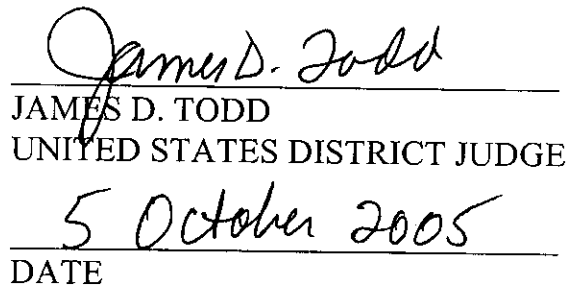 James D. Todd
JAMES D. TODD
UNITED STATES DISTRICT JUDGE
5 October 2005
DATE